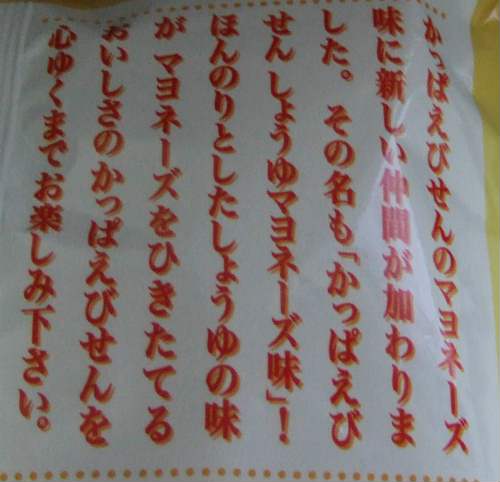 かっぱえびせんのマヨネーズ
味に新しい仲間が加わりま
した。 その名も「かっぱえび
せん しょうゆマヨネーズ味」!
ほんのりとしたしょうゆの味
が マヨネーズをひきたてる
おいしさのかっぱえびせんを
心ゆくまでお楽しみ下さい。